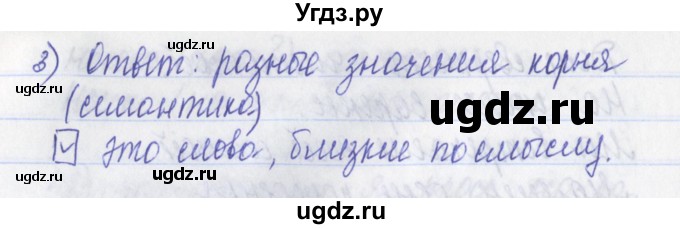 Угдз.ру
ugdz.ru ugdz.ru
3) Ответ: разные значения корня
ugdz.ru
(симантика)
ugdz.ru
ч это слова, близкие по смыслу.
ugdz.ru ugdz.ru
ugdz.ru